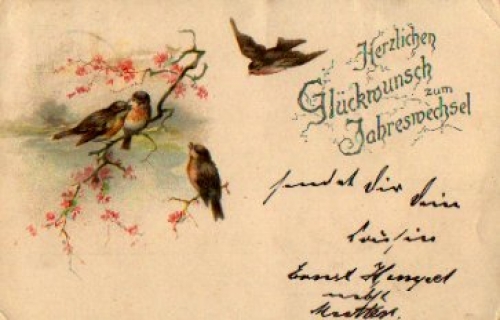 Herzlichen
Glückwunsch
zum
Jahreswechsel
sendet Dir Dein
Cousin
Ernst Hengel
nebst
Mutter.